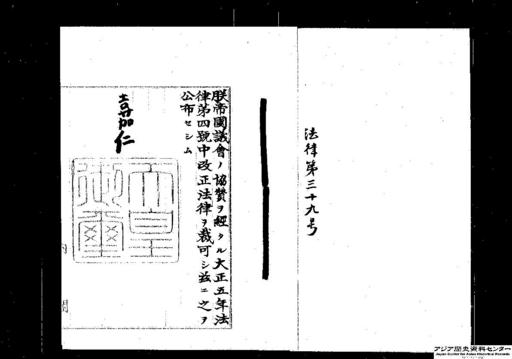 法律第三十九号
朕帝國議會ノ協賛ヲ經タル大正五年法
律第四號中改正法律ヲ裁可シ茲ニ之ヲ
公布セシム
嘉仁
天皇御璽
内閣
アジア歴史資料センター
Japan Center for Asian Historical Records